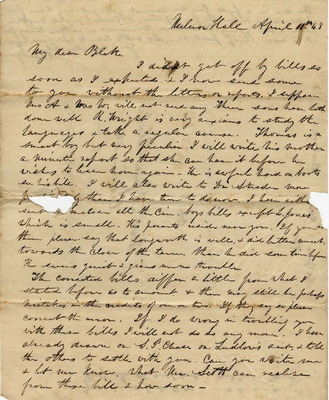 Nelson Hall April 18th 43
My dear Blake
I did not get off by bills so
soon as I expected & I now send some
to you without the letters or reports. I suppose
Mrs A & Mrs W. will not use any. Their sons have both
done well R. Wright is very anxious to study the
languages & take a regular course. Thomas is a
smart boy but very peculiar I will write his mother
a minute report so that she can have it before he
wishes to leave home again. He is awful hard on boots
I will also write to Dr. Shader more
than I have time to do now. I have either
sent or all the Cin. boys bills except
which is small. His parents reside near you. If you see
them please say that Longworth is well, & did better much
towards the close of the term than he did some time before
he seems quiet & gives me no trouble
The corrected bills differ a little from what I
stated before so to amount as there may still be perhaps
mistakes in the credits of one or two. If they are so please
correct them. If I do wrong in troubling you
with these bills I will not do so any more. I have
already drawn on S. P. Chase on Ludlow's act. & told
the others to settle with you. Can you write me
& let me know, what Mr. Scott can realize
from these bills & how soon—